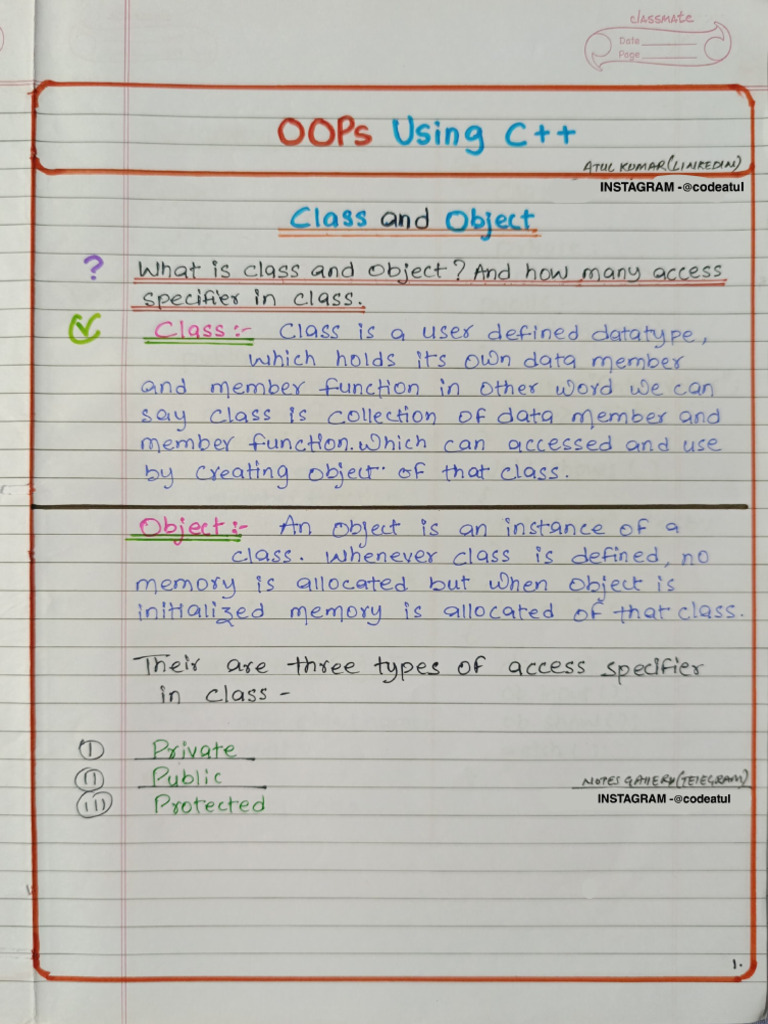 classmate
Date
Page
OOPs Using C++
ATUL KUMAR (LINKEDIN)
INSTAGRAM -@codeatul
Class and Object
? What is class and object? And how many access
specifier in class.
Class :- Class is a user defined datatype,
which holds its own data member
and member function in other word we can
say class is collection of data member and
member function. Which can accessed and use
by creating object of that class.
Object :- An object is an instance of a
class. Whenever class is defined, no
memory is allocated but when object is
initialized memory is allocated of that class.
Their are three types of access specifier
in class -
(I) Private
(II) Public
(III) Protected
NOTES GALLERY (TELEGRAM)
INSTAGRAM -@codeatul
1.